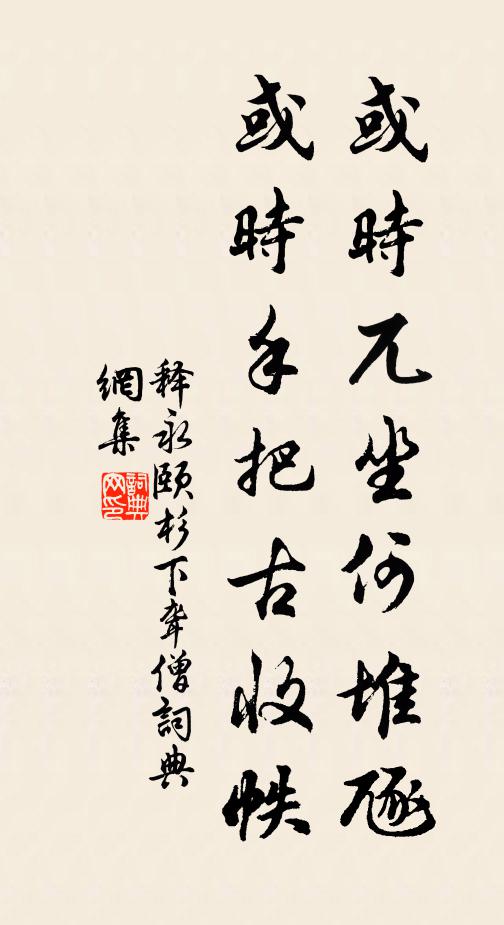 或時兀坐何堆豗
或時手把古收帙
释永頤杉下聋僧詞典
網集
詞典
网印